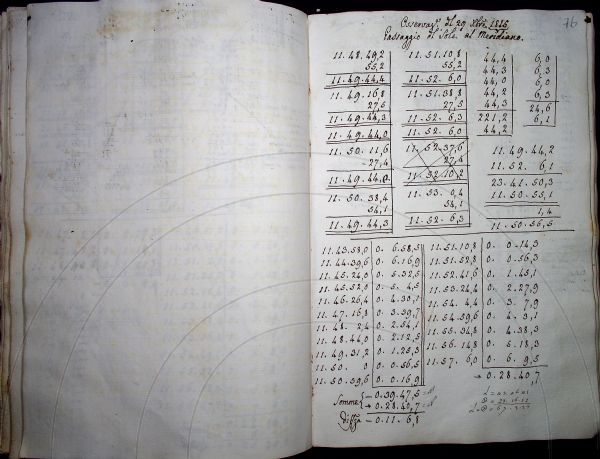 76
Osservaz.e del 29 Xbre 1815
Passaggio del Sole al Meridiano.
11.48.49,2
55,2
11.49.44,4
11.49.16,8
27,5
11.49.44,3
11.49.44,0
11.50.11,6
27,4
11.49.44,0
11.50.38,4
54,1
11.49.44,3
11.51.10,8
55,2
11.52.6,0
11.51.38,8
27,5
11.52.6,3
11.52.6,0
11.52.37,6
27,4
11.52.10,2
11.53.0,4
54,1
11.52.6,3
44,4
44,3
44,0
44,2
44,3
221,2
44,2
6,0
6,3
6,0
6,3
24,6
6,1
11.49.44,2
11.52.6,1
23.41.50,3
11.50.55,1
1,4
11.50.56,5
11.43.58,0 0.6.58,5
11.44.39,6 0.6.16,9
11.45.24,0 0.5.32,5
11.45.52,0 0.5.4,5
11.46.26,4 0.4.30,1
11.47.16,8 0.3.39,7
11.48.2,4 0.2.54,1
11.48.44,0 0.2.12,5
11.49.31,2 0.1.25,3
11.50.0 0.0.56,5
11.50.39,6 0.0.16,9
11.51.10,8 0.0.14,3
11.51.52,8 0.0.56,3
11.52.41,6 0.1.45,1
11.53.24,4 0.2.27,9
11.54.4,4 0.3.7,9
11.54.59,6 0.4.3,1
11.55.34,8 0.4.38,3
11.56.14,8 0.5.18,3
11.57.6,0 0.6.9,5
0.28.40,7
Somme 0.39.47,5
0.28.40,7
Diffza 0.11.6,8